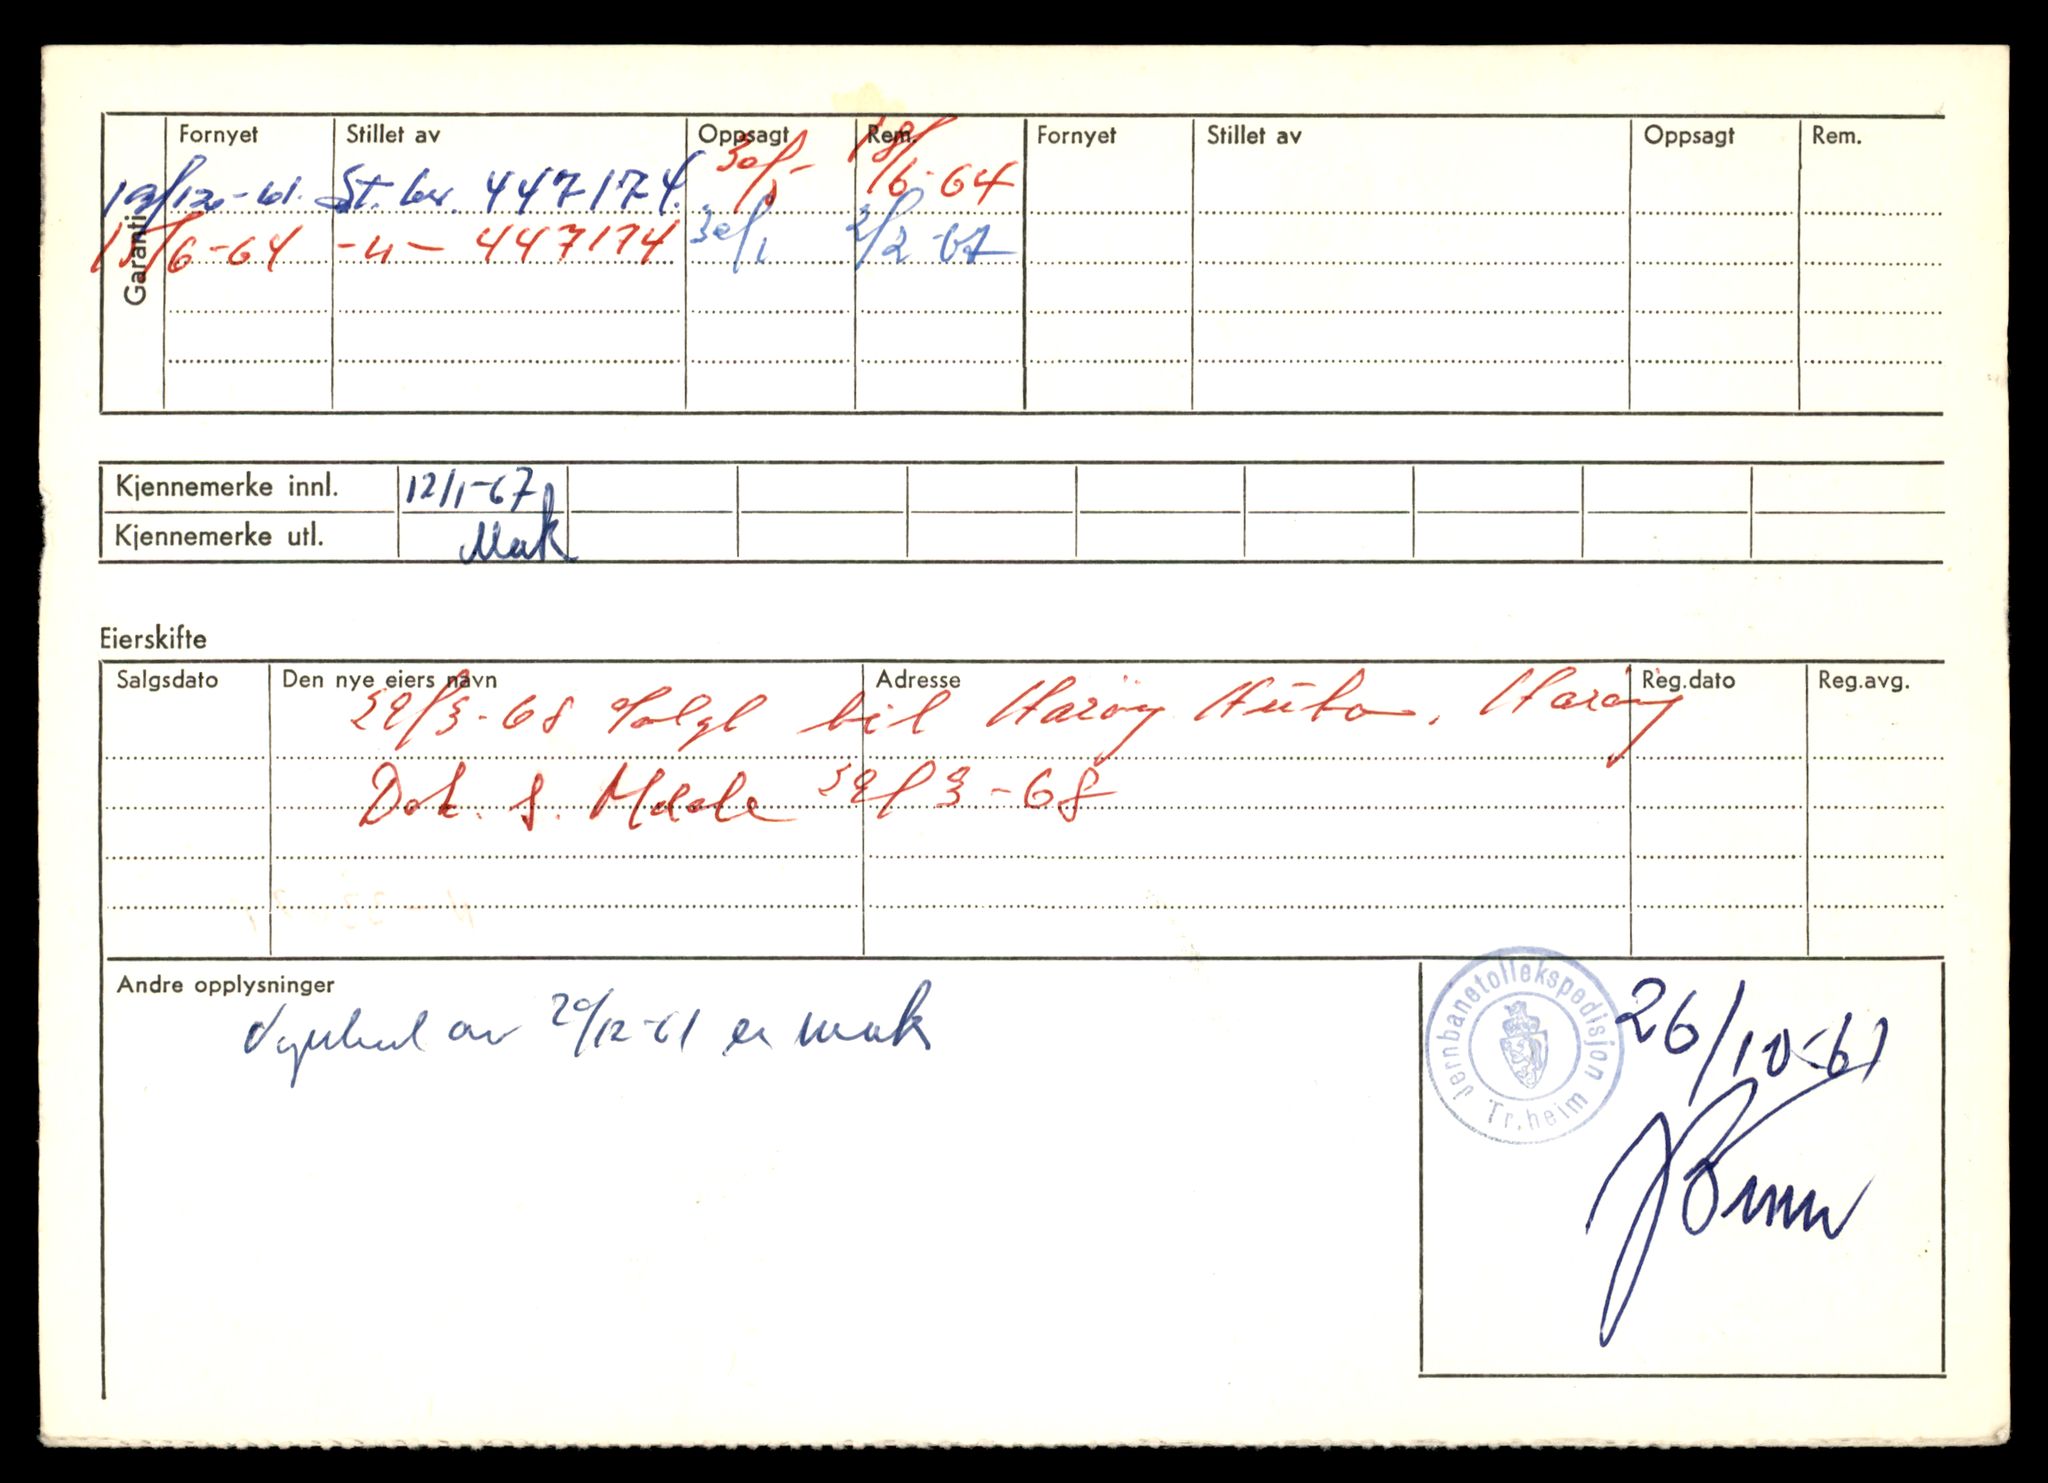 Garanti
Fornyet Stillet av Oppsagt Rem. Fornyet Stillet av Oppsagt Rem.
19/12-61. St. br. 447174. 30/1 18/6-64
15/6-64 -"- 447174 30/1 2/2-67
Kjennemerke innl. 12/1-67
Kjennemerke utl. Mak
Eierskifte
Salgsdato Den nye eiers navn Adresse Reg.dato Reg.avg.
29/3-68 Solgt til Harøy Harøy
Dok. s. 29/3-68
Andre opplysninger
av 20/12-61 er mak
Jernbanetollekspedisjon Tr.heim
26/10-61